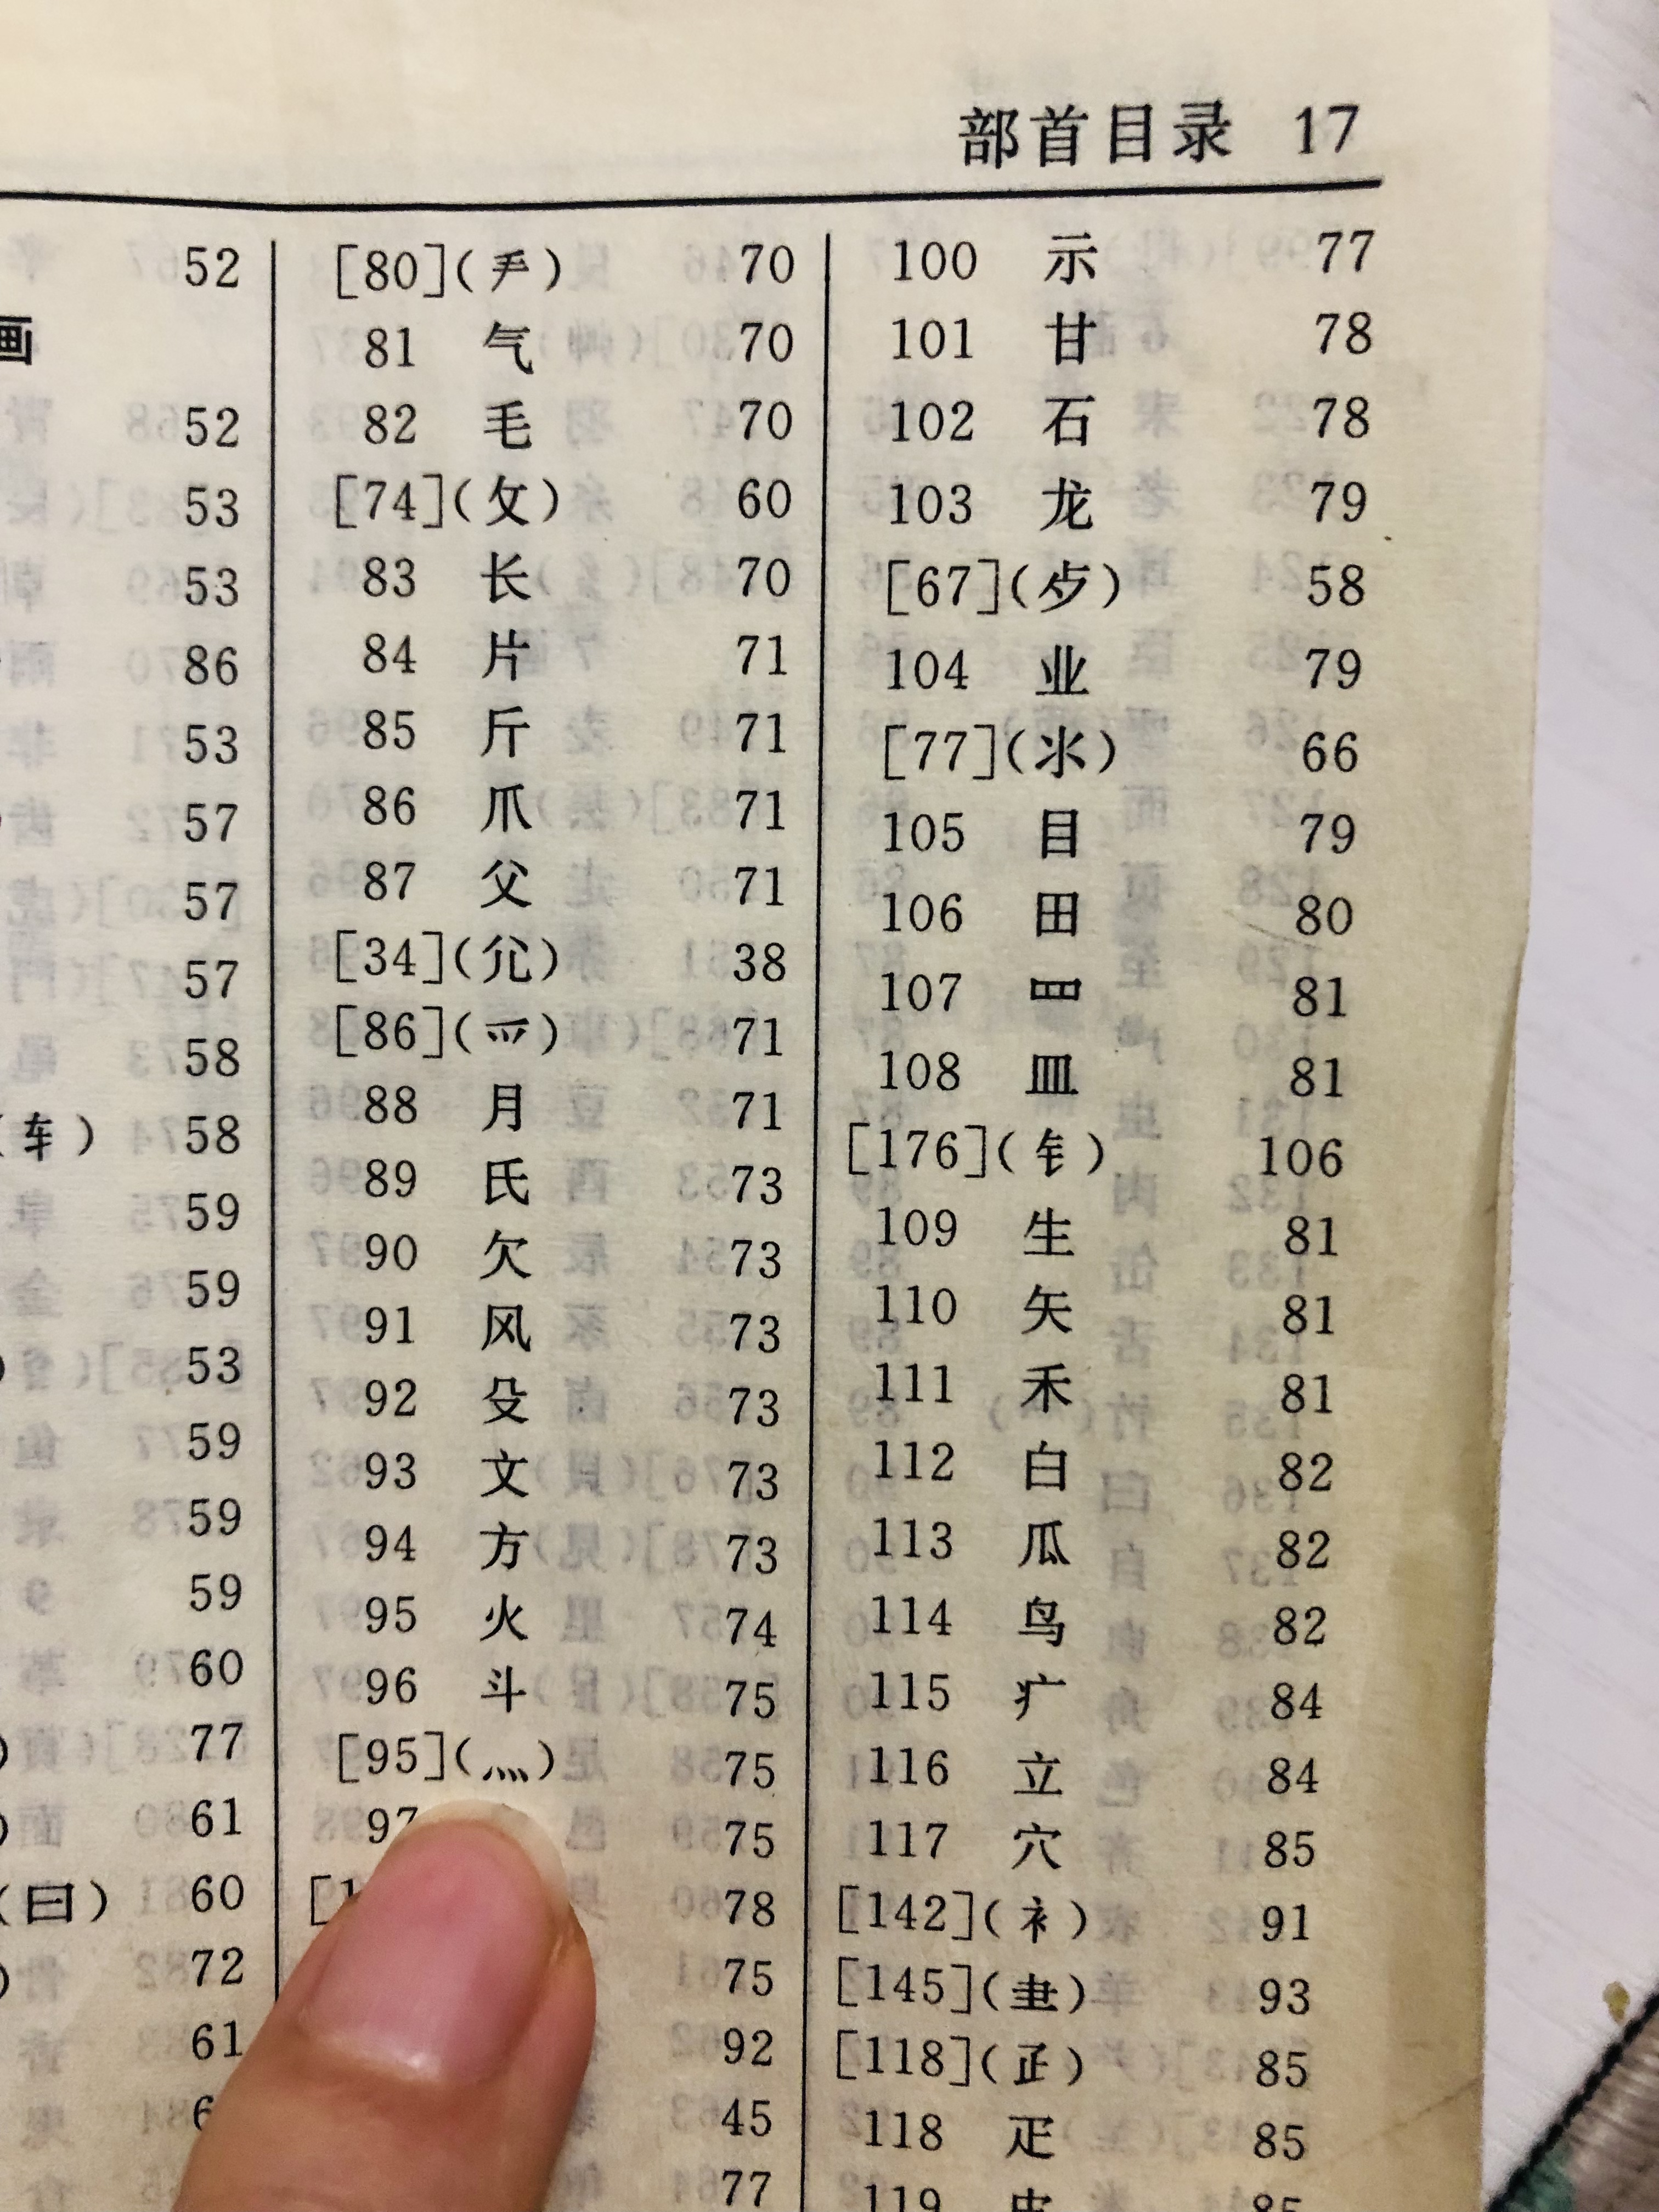 部首目录 17
52
画
52
53
53
86
53
57
57
57
58
(车) 58
59
59
53
59
59
59
60
77
61
(曰) 60
72
61
[80](手) 70
81 气 70
82 毛 70
[74](攵) 60
83 长 70
84 片 71
85 斤 71
86 爪 71
87 父 71
[34](尣) 38
[86](爫) 71
88 月 71
89 氏 73
90 欠 73
91 风 73
92 殳 73
93 文 73
94 方 73
95 火 74
96 斗 75
[95](灬) 75
97 75
78
75
92
45
77
100 示 77
101 甘 78
102 石 78
103 龙 79
[67](歺) 58
104 业 79
[77](氺) 66
105 目 79
106 田 80
107 罒 81
108 皿 81
[176](钅) 106
109 生 81
110 矢 81
111 禾 81
112 白 82
113 瓜 82
114 鸟 82
115 疒 84
116 立 84
117 穴 85
[142](衤) 91
[145](⺻) 93
[118](𤴔) 85
118 疋 85
119 皮 85